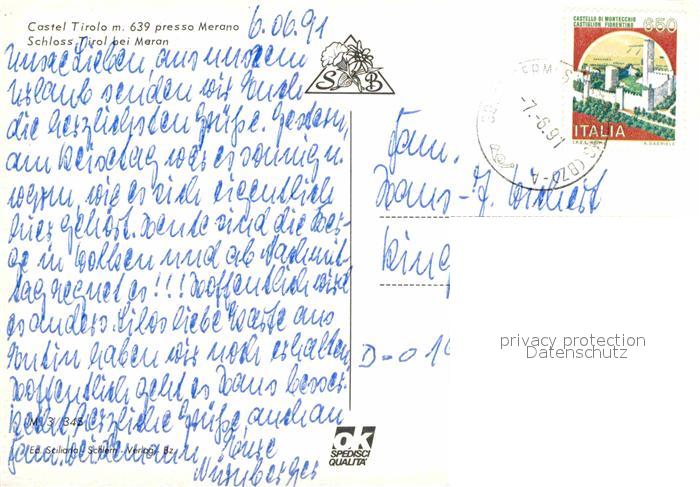 Castel Tirolo m. 639 presso Merano
Schloss Tirol bei Meran
6.06.91
Unsere Lieben, aus unserem
Urlaub senden wir Euch
die herzlichsten Grüße. Gestern,
am Reisetag war es sonnig u.
warm, wie es sich eigentlich
hier gehört. Heute sind die Ber-
ge in Wolken und ab Nachmit-
tag regnet es!!! Hoffentlich wird
es anders. Eure liebe Karte aus
haben wir noch erhalten.
Hoffentlich geht es Hans besser.
Recht herzliche Grüße, auch an
Fam. Eure
Nürnberger
M 3/345
Ed. Sciliana - Schlern - Verlag - Bz.
S B
OK
SPEDISCI
QUALITA'
CASTELLO DI MONTECCHIO
CASTIGLION FIORENTINO
650
ITALIA
-7.-6.91
(BZ)-A
Fam.
Hans-J.
D-01
privacy protection
Datenschutz